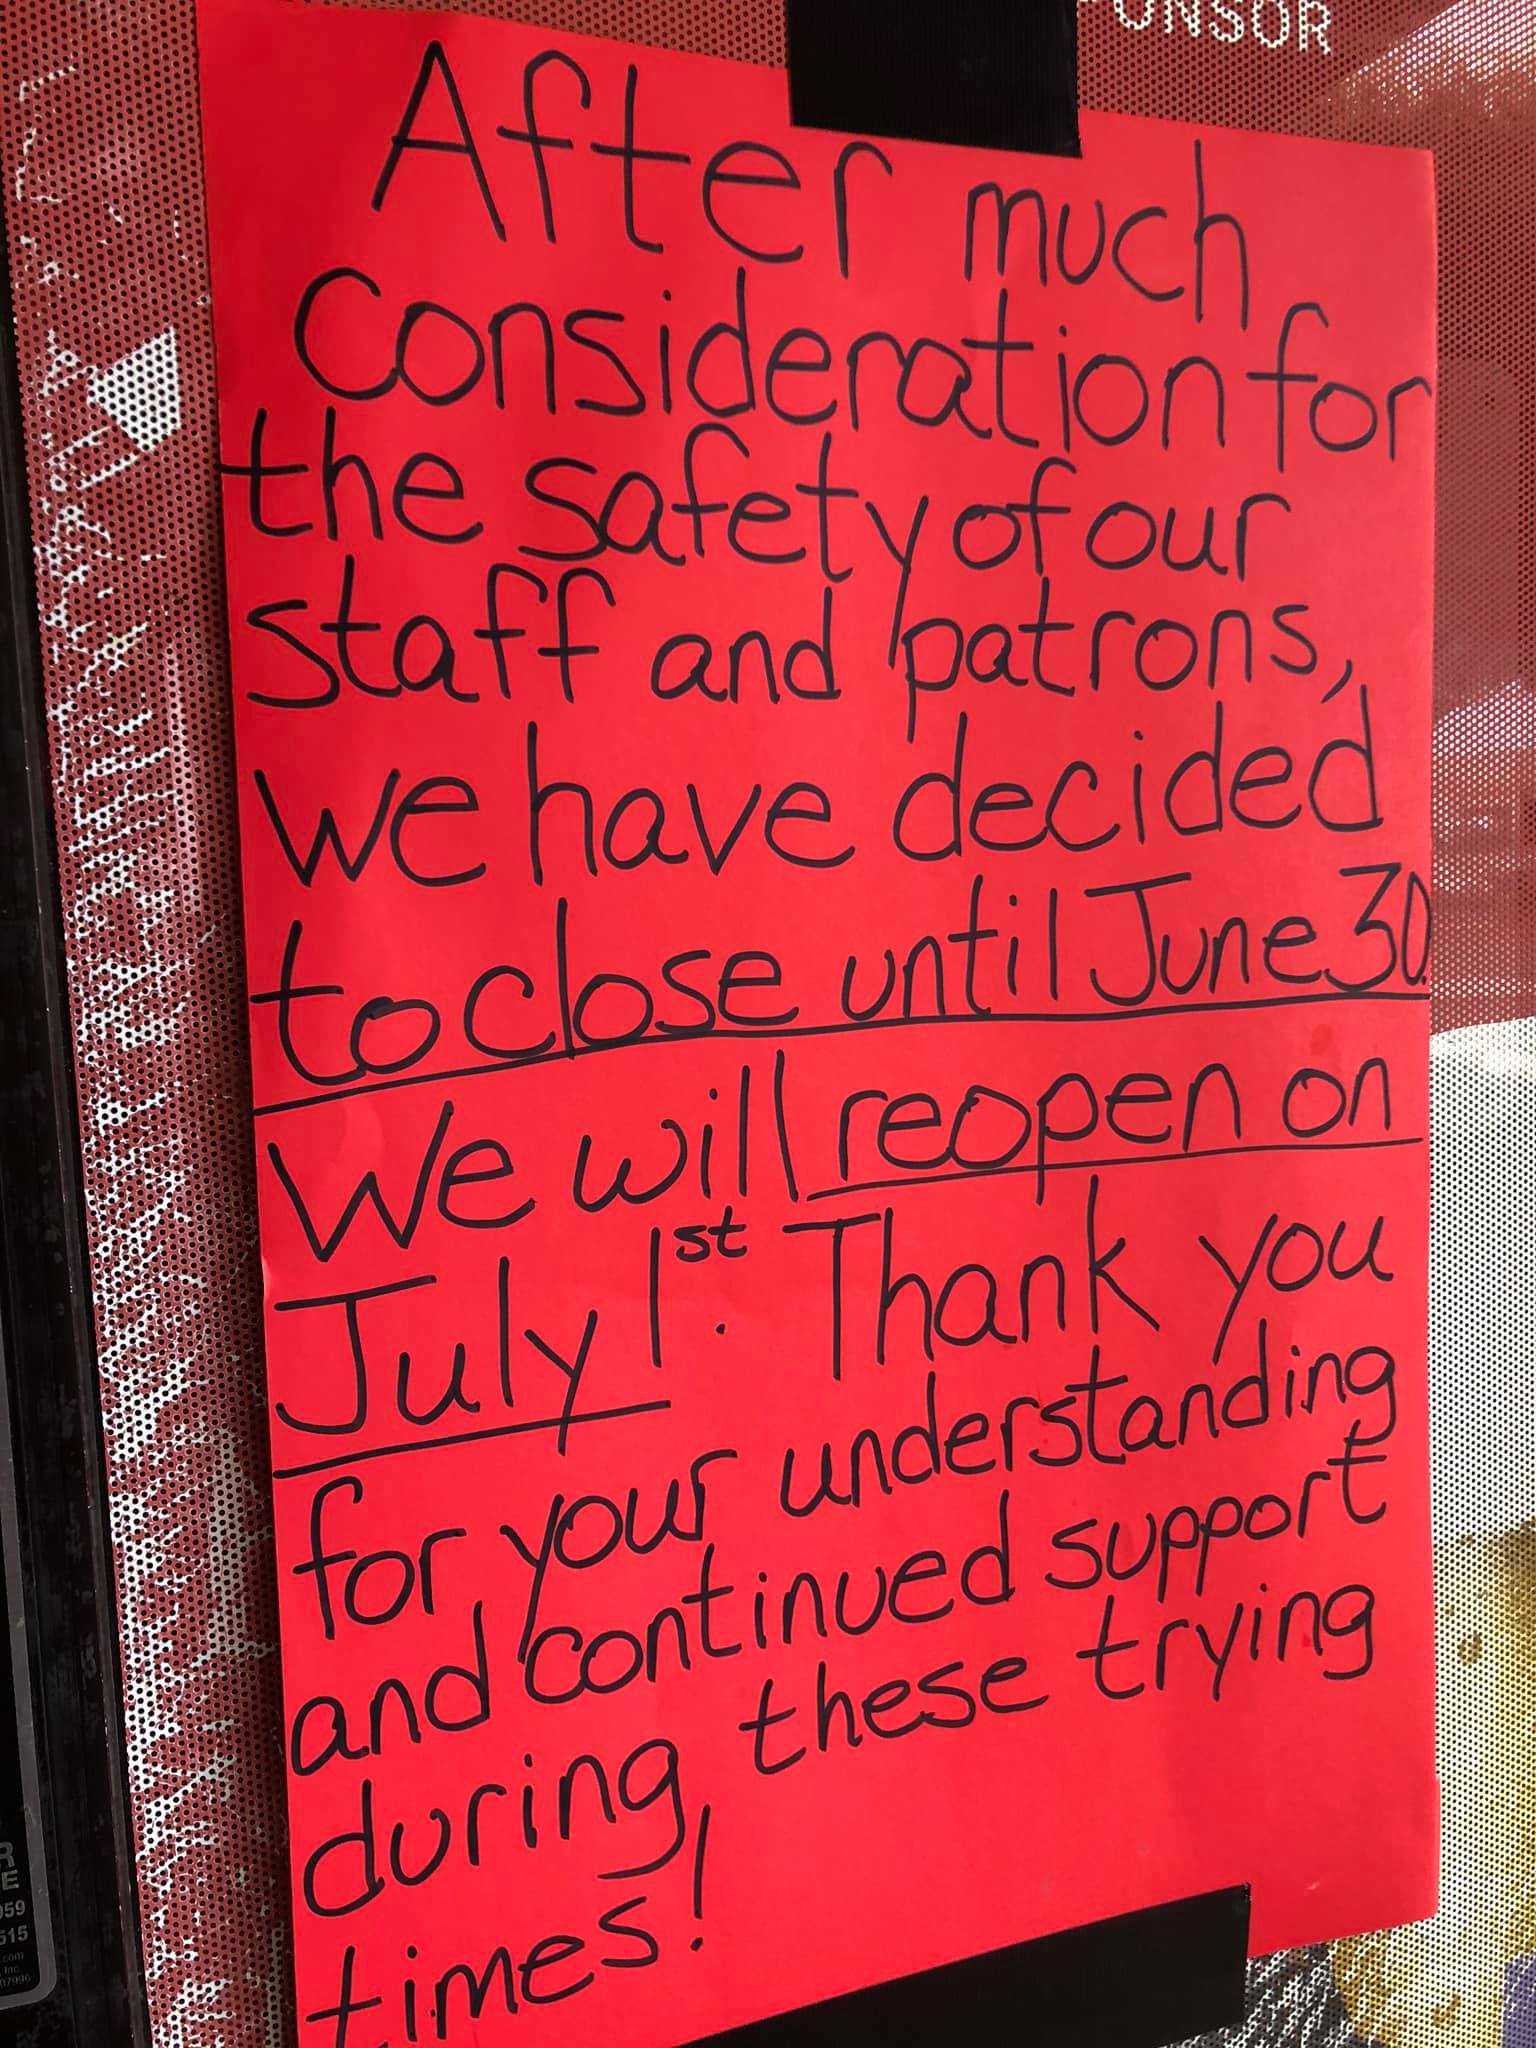 ONSOR
After much
Consideration for
the safety of our
staff and patrons,
we have decided
to close until June 30.
We will reopen on
July 1st. Thank you
for your understanding
and continued support
during these trying
times!
R
E
059
515
.com
Inc.
07996